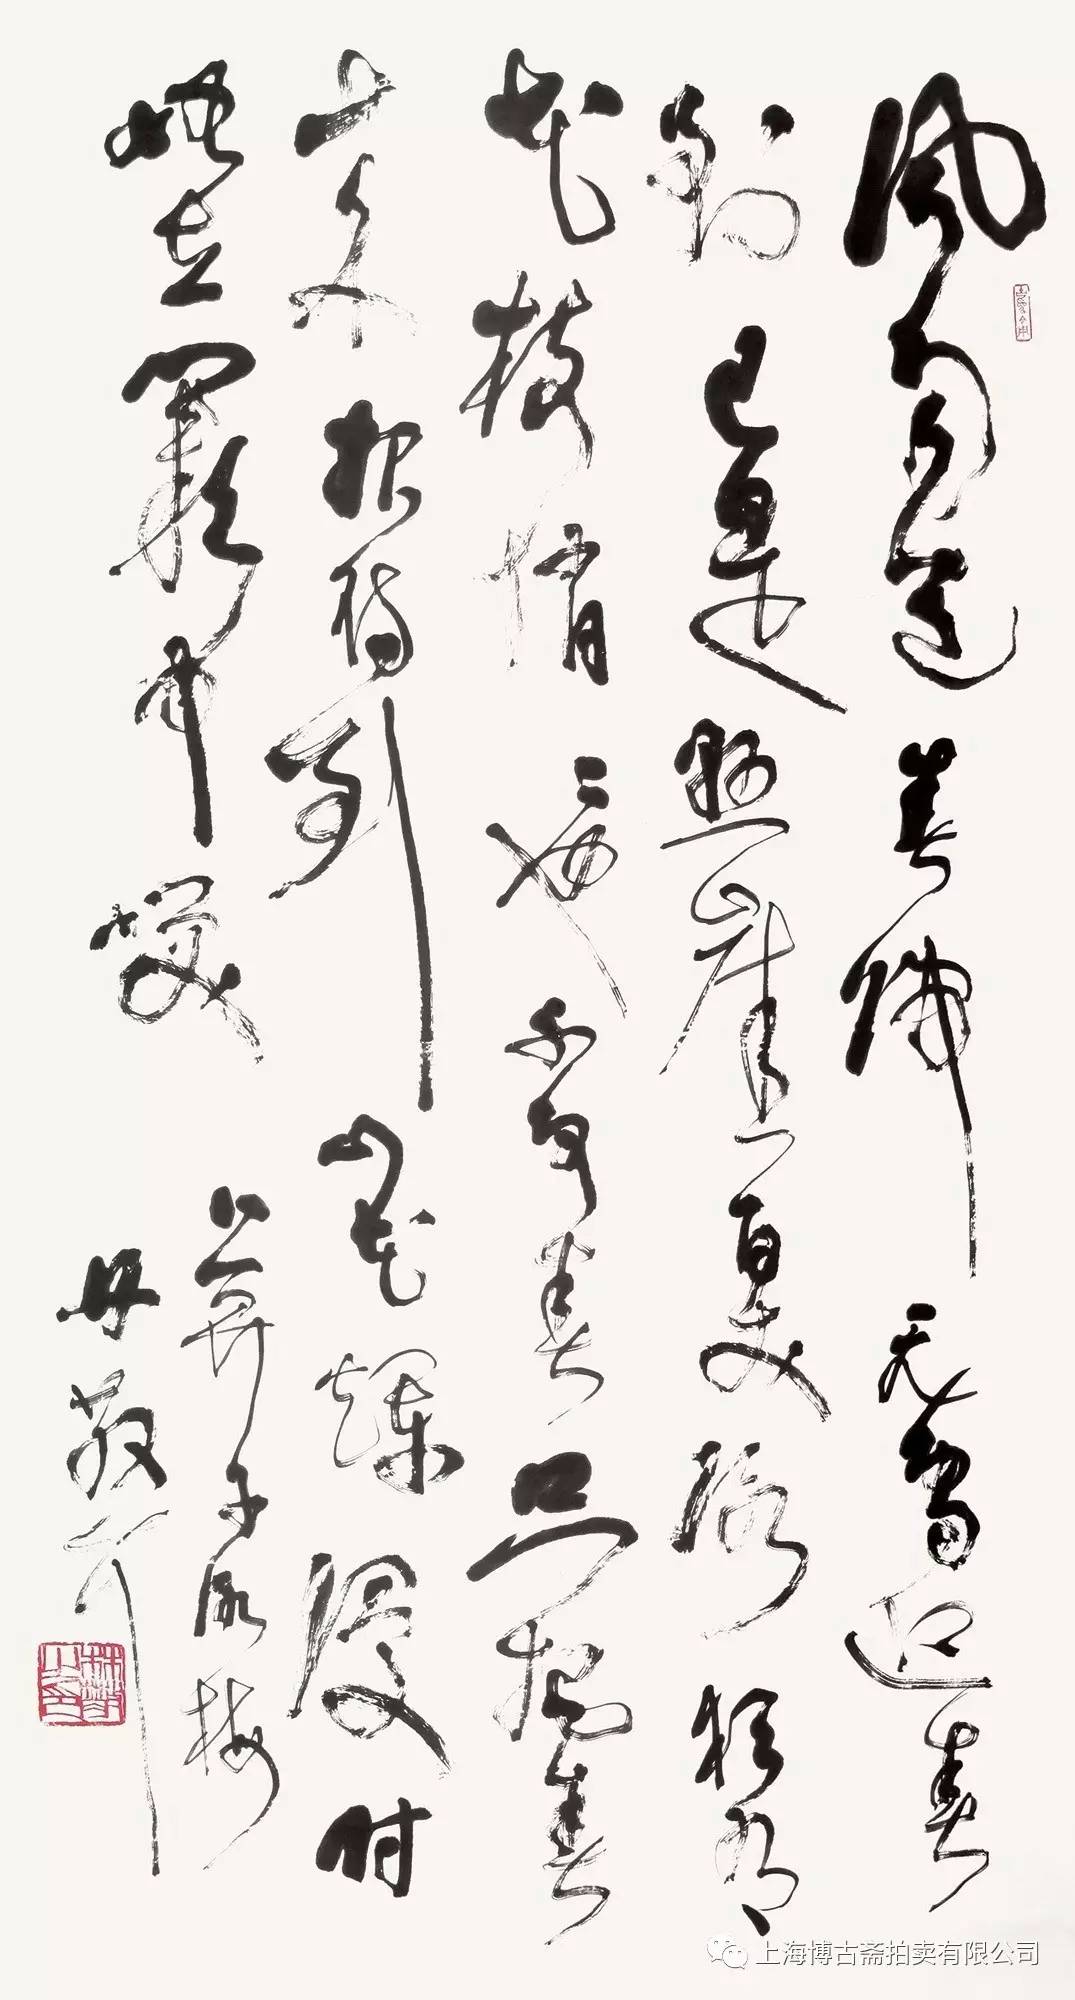 风雨送春归飞雪迎春
到已是悬崖百丈冰犹有
花枝俏〻也不争春只把春
来报待到山花烂漫时
她在丛中笑
卜算子咏梅
林散耳
林散之印
上海博古斋拍卖有限公司